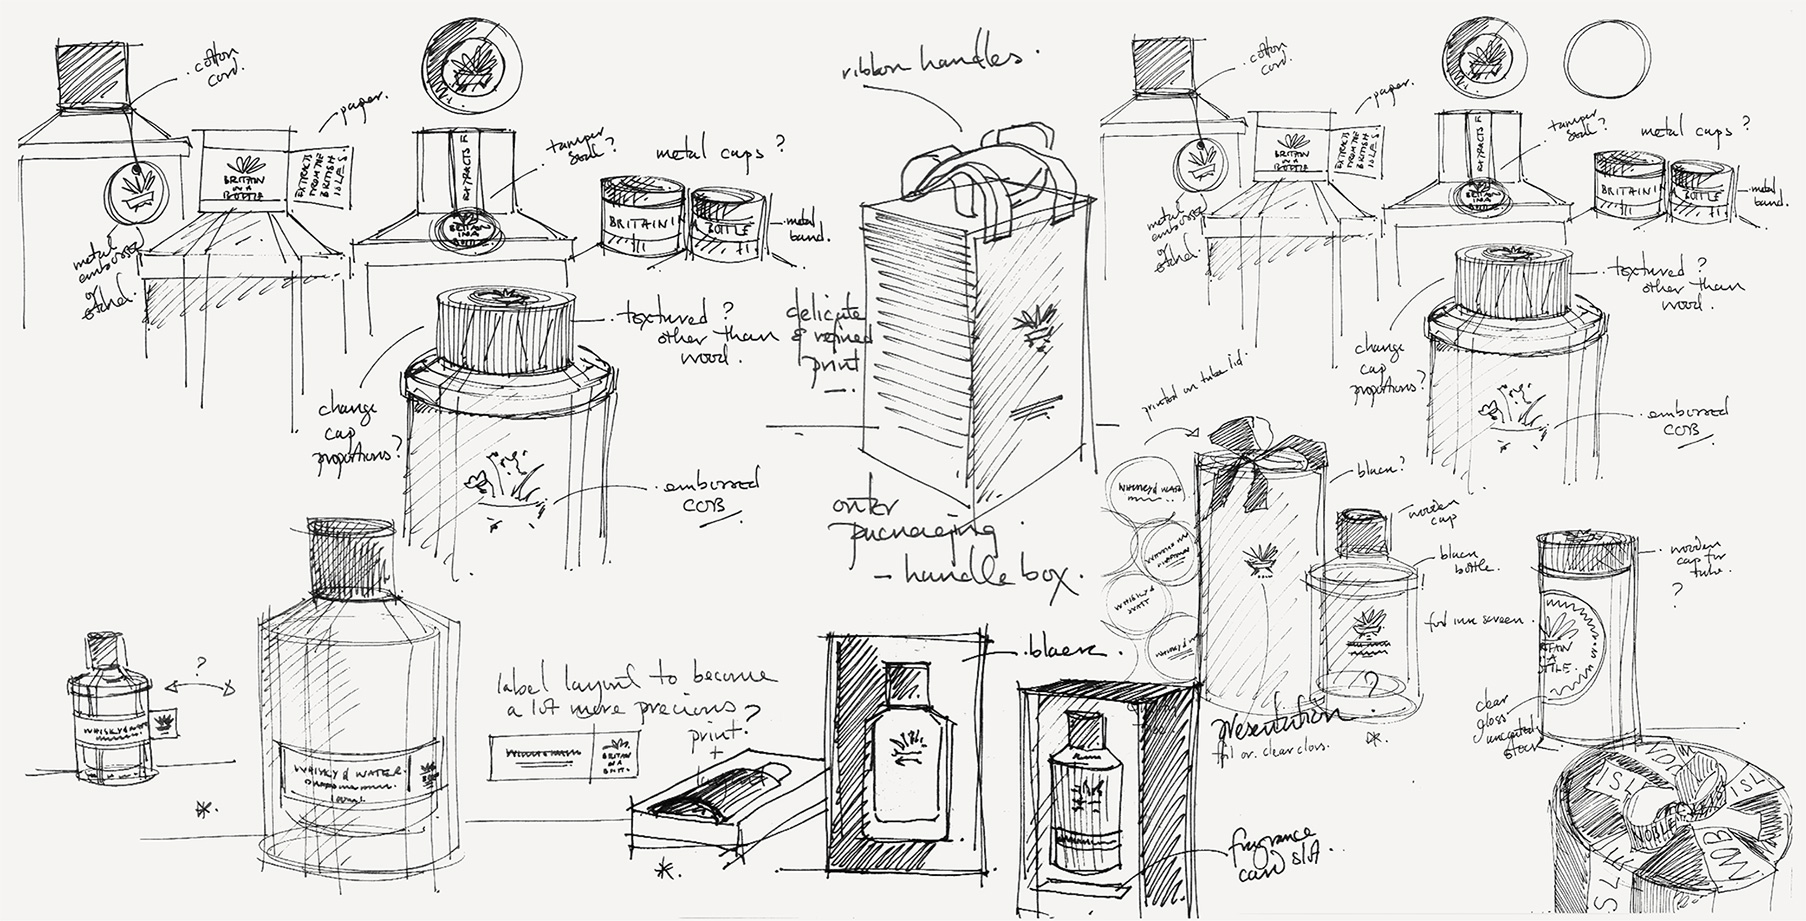 cotton
cord.
paper.
BRITAIN
IN A
BOTTLE
EXTRACTS
FROM THE
BRITISH
ISLES.
metal
embossed
or
etched.
EXTRACTS F
BRITAIN
IN A
BOTTLE
tamper
seal?
metal caps ?
BRITAIN I
BOTTLE
metal
band.
textured ?
other than
wood.
change
cap
proportions?
embossed
COB
ribbon handles.
delicate
& refined
print
outer
packaging
- handle box.
cotton
cord.
paper.
BRITAIN
IN A
BOTTLE
EXTRACTS
FROM THE
BRITISH
ISLES.
metal
embossed
or
etched.
EXTRACTS F
BRITAIN
IN A
BOTTLE
tamper
seal?
metal caps ?
BRITAIN I
BOTTLE
metal
band.
textured ?
other than
wood.
change
cap
proportions?
embossed
COB
printed on tube lid.
WHISKY & WATER
WHISKY &
WATER
black?
wooden
cap
black
bottle.
foil ink screen.
presentation
foil or clear gloss.
?
wooden
cap for
tube.
?
clear
gloss
uncoated
stock
?
WHISKY & WATER
WHISKY & WATER.
100ml.
label layout to become
a lot more precious
print.?
+
BRITAIN
IN A
BOTT.
black.
fragrance
card slot.
ISL
ISL
NOBLE
NOB
ISLE